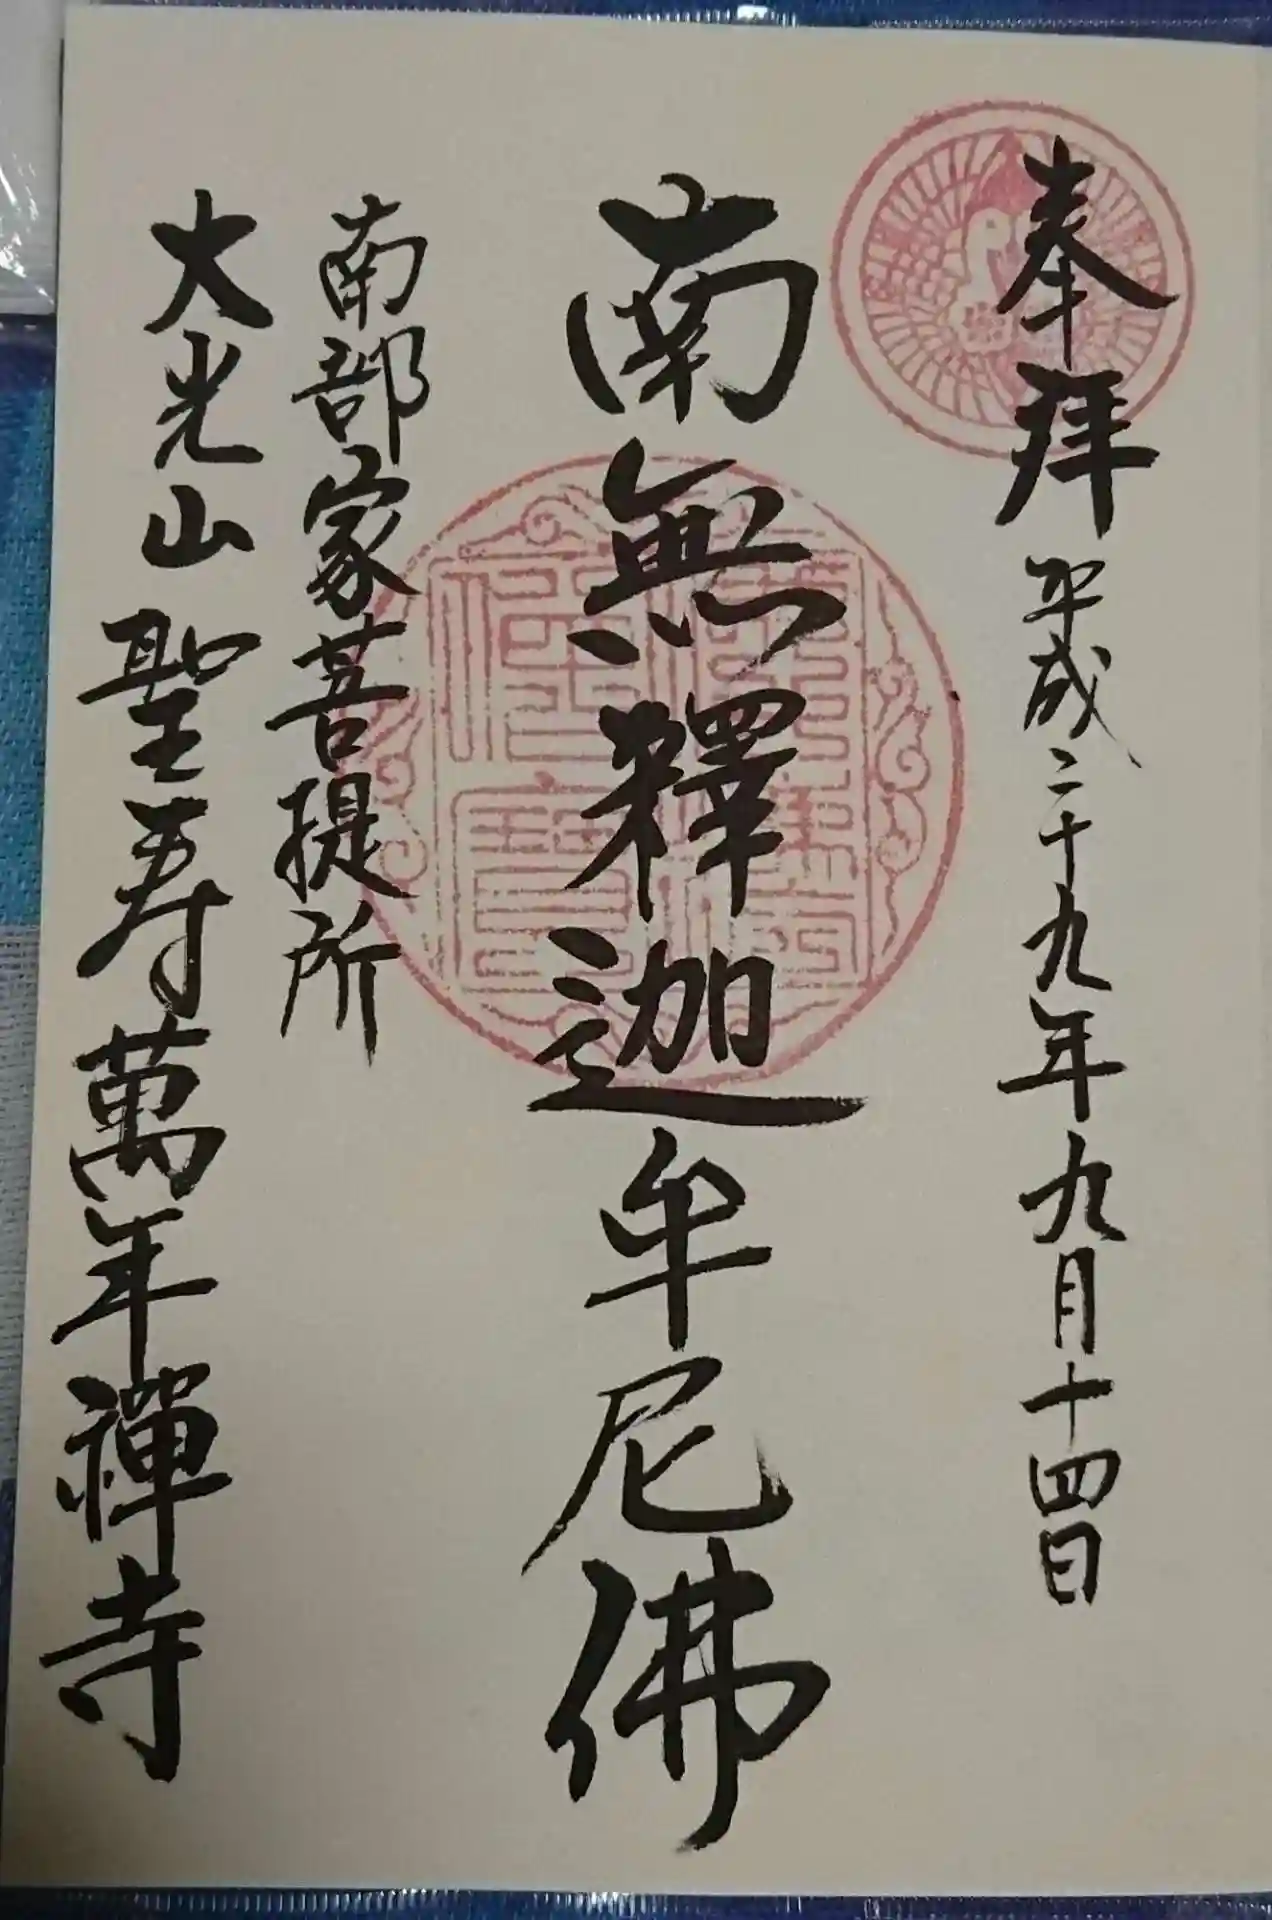 奉拝 平成二十九年九月十四日
南無釋迦牟尼佛
南部家菩提所
大光山聖寿萬年禪寺